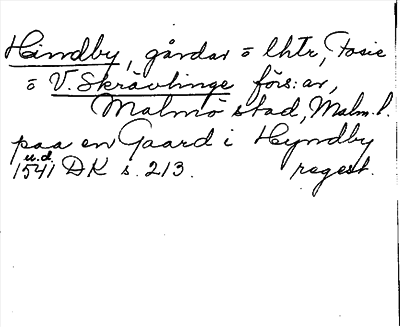 Hindby, gårdar o lhtr, Fosie
o V. Skrävlinge förs:ar,
Malmö stad, Malm.l.
paa en Gaard i Hyndby
u.d.
1541 DK s. 213. regest.